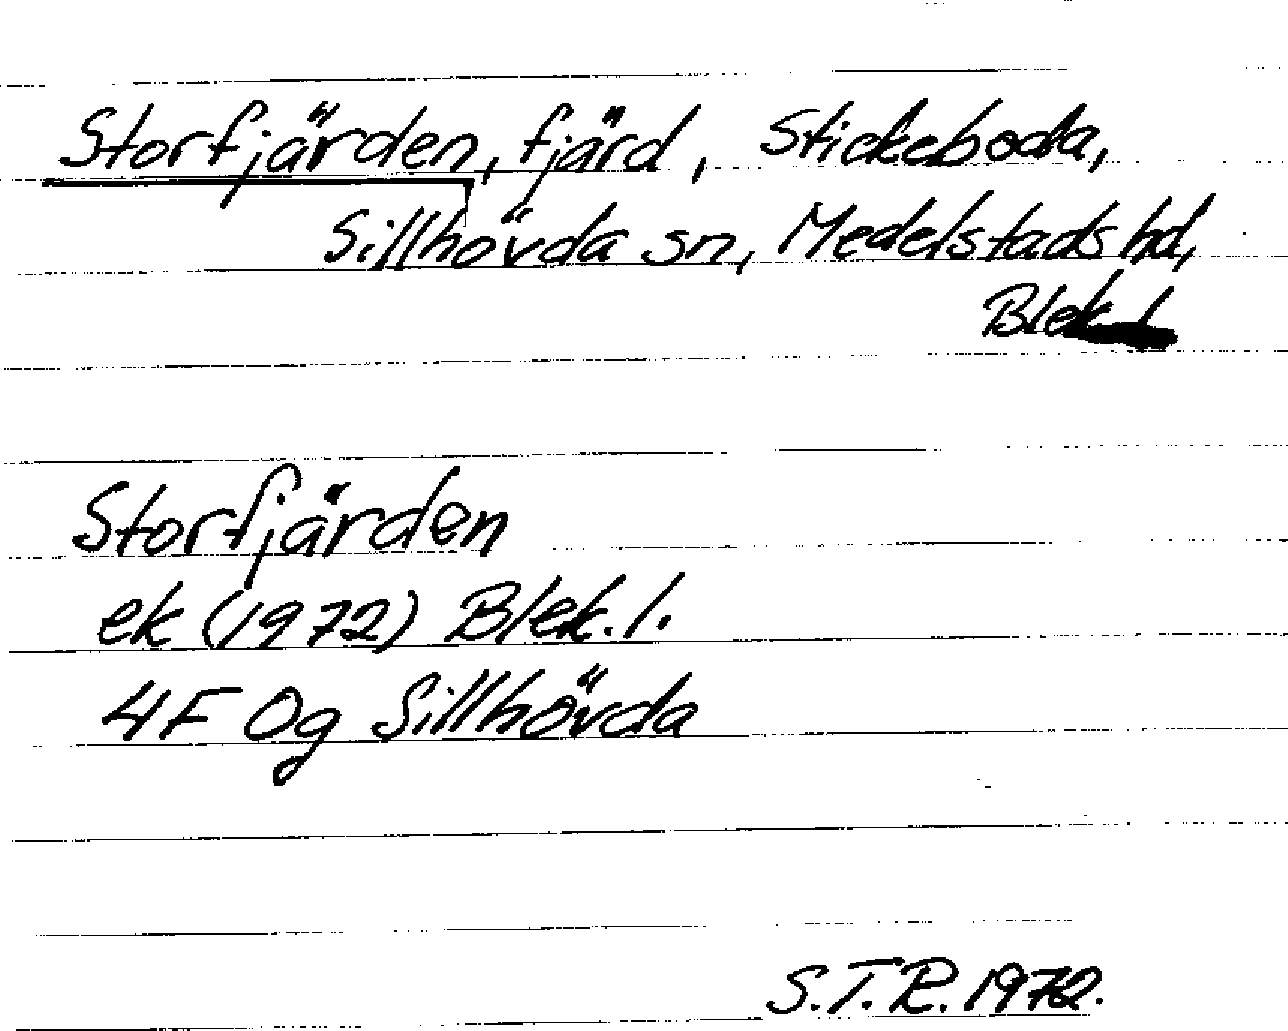 Storfjärden, fjärd, Stickeboda,
Sillhövda sn, Medelstads hd,
Blek. l.
Storfjärden
ek (1972) Blek. l.
4F Og Sillhövda
S.T.R. 1972.